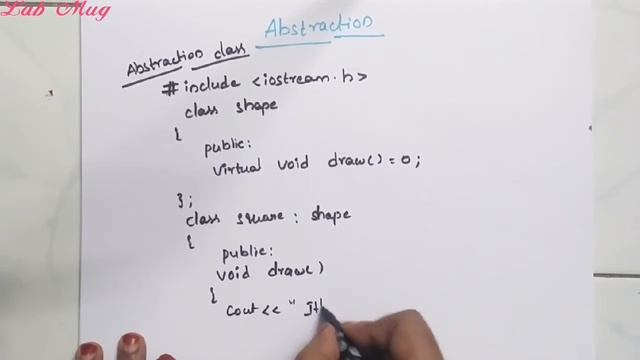 Lab Mug
Abstraction
Abstraction class
# include <iostream.h>
class shape
{
public:
virtual void draw() = 0;
};
class square : shape
{
public:
void draw()
{
cout << "